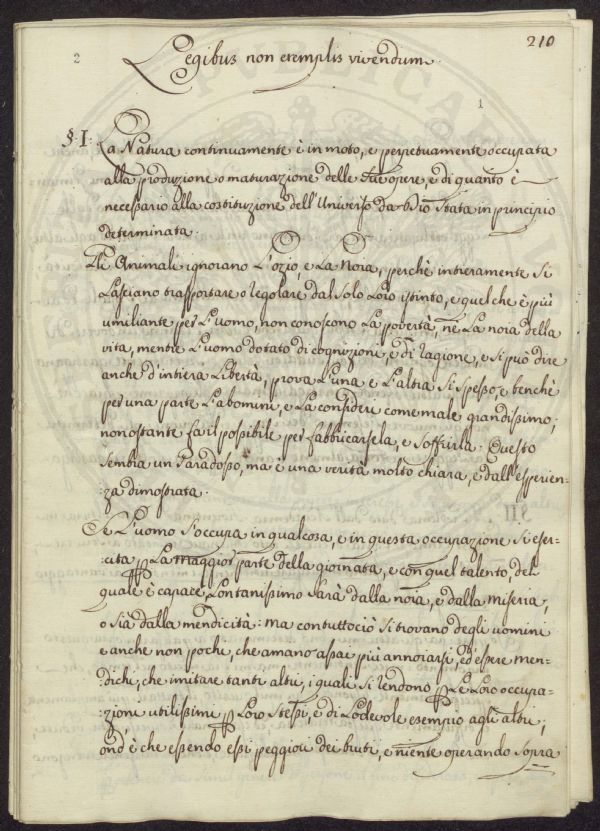 2
210
Legibus non exemplis vivendum.
1
§. I. La Natura continuamente è in moto, e perpetuamente occupata
alla produzione o maturazione delle sue opere, e di quanto è
necessario alla costituzione dell'Universo da Dio stata in principio
determinata.
Gli Animali ignorano L'ozio, e La Noia, perchè intieramente si
Lasciano trasportare o regolare dal solo Loro istinto, e quel che è più
umiliante per L'uomo, non conoscono La povertà, nè La noia della
vita, mentre L'uomo dotato di cognizione, e di ragione, e si può dire
anche d'intiera Libertà, prova L'una e L'altra sì spesso, e benchè
per una parte L'abomini, e La consideri come male grandissimo;
nonostante fa il possibile per fabbricarsela, e soffrirla. Questo
sembra un Paradosso, ma è una verità molto chiara, e dall'esperien-
-za dimostrata.
Se L'uomo s'occupa in qualcosa, e in questa occupazione si eser-
-cita p La maggior parte della giornata, e con quel talento, del
quale è capace, Lontanissimo sarà dalla noia, e dalla miseria,
o sia dalla mendicità: ma contuttociò si trovano degli uomini
e anche non pochi, che amano assai più annoiarsi, ed essere men-
-dichi, che imitare tanti altri, i quali si rendono p Le Loro occupa-
-zioni utilissimi p Loro stessi, e di Lodevole esempio agli altri;
ond'è che essendo essi peggiori dei bruti, e niente operando sopra